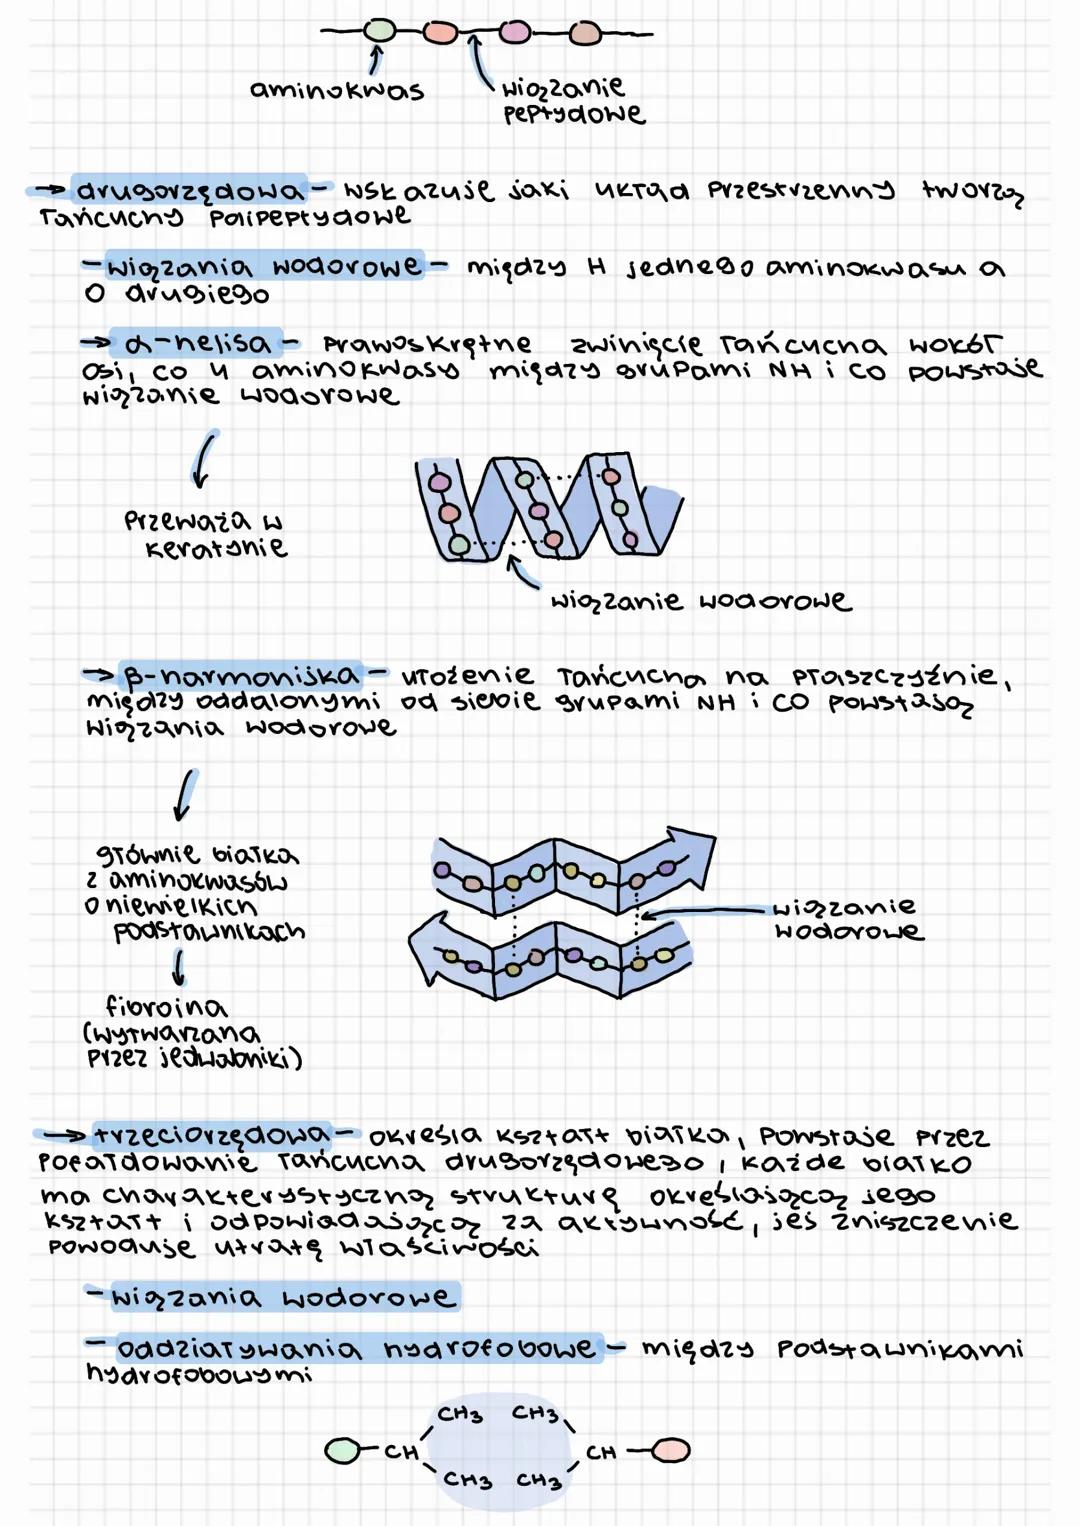 aminokwas
wiązanie
peptydowe
→ drugorzędowa – wskazuje jaki układ przestrzenny tworzą
łańcuchy polipeptydowe
– wiązania wodorowe – między H jednego aminokwasu a
O drugiego
→ α-helisa – prawoskrętne zwinięcie łańcucha wokół
osi, co 4 aminokwasy między grupami NH i CO powstaje
wiązanie wodorowe
przeważa w
keratynie
wiązanie wodorowe
→ β-harmonijka – ułożenie łańcucha na płaszczyźnie,
między oddalonymi od siebie grupami NH i CO powstają
wiązania wodorowe
głównie białka
z aminokwasów
o niewielkich
podstawnikach
wiązanie
wodorowe
fibroina
(wytwarzana
przez jedwabniki)
→ trzeciorzędowa – określa kształt białka, powstaje przez
pofałdowanie łańcucha drugorzędowego, każde białko
ma charakterystyczną strukturę określającą jego
kształt i odpowiadającą za aktywność, jej zniszczenie
powoduje utratę właściwości
– wiązania wodorowe
– oddziaływania hydrofobowe – między podstawnikami
hydrofobowymi
CH3 CH3
CH CH
CH3 CH3